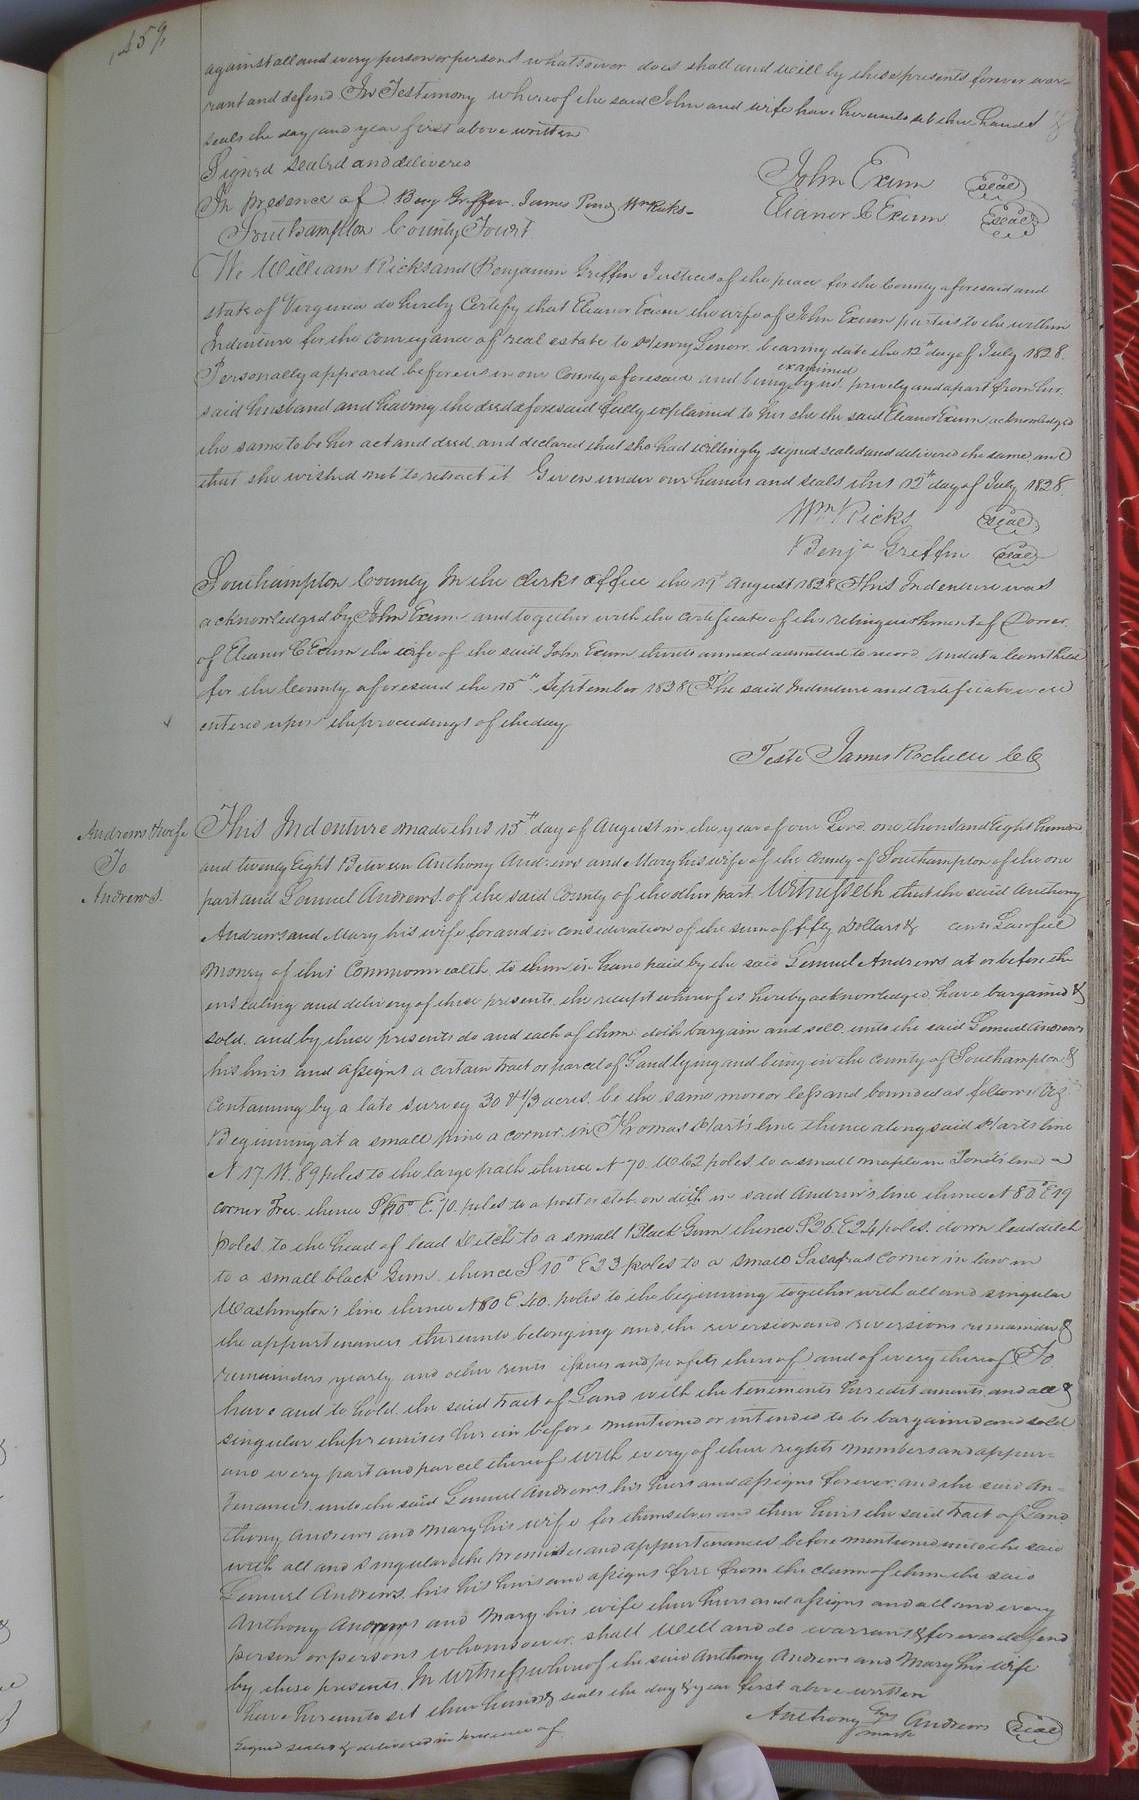 459
against all and every person or persons whatsoever does shall and will by these presents forever war-
rant and defend In Testimony whereof the said John and wife have hereunto set their hands &
seals the day and year first above written
Signed sealed and delivered
In presence of Benj Griffin James Wm Ricks
John Exum seal
Eleanor C Exum seal
Southampton County Towit
We William Ricks and Benjamin Griffin Justices of the peace for the County aforesaid and
state of Virginia do hereby Certify that Eleanor Exum the wife of John Exum parties to the within
Indenture for the conveyance of real estate to Henry bearing date the 12th day of July 1828.
Personally appeared before us in our County aforesaid and being examined by us privily and apart from her
said husband and having the deed aforesaid fully explained to her she the said Eleanor Exum acknowledged
the same to be her act and deed and declared that she had willingly signed sealed and delivered the same and
that she wished not to retract it Given under our hands and seals this 12th day of July 1828.
Wm Ricks seal
Benja Griffin seal
Southampton County In the Clerks office the 19th August 1828 This Indenture was
acknowledged by John Exum and together with the certificate of the relinquishment of Dower
of Eleanor C Exum the wife of the said John Exum thereto annexed admitted to record And at a Court held
for the County aforesaid the 15th September 1828 The said Indenture and certificate were
entered upon the proceedings of the day
Teste James Rochelle CC
Andrews & wife
To
Andrews.
This Indenture made this 15th day of August in the year of our Lord one thousand Eight hundred
and twenty Eight Between Anthony Andrews and Mary his wife of the County of Southampton of the one
part and Lemuel Andrews of the said County of the other part Witnesseth that the said Anthony
Andrews and Mary his wife for and in consideration of the sum of fifty Dollars & cents Lawful
money of this Commonwealth to them in hand paid by the said Lemuel Andrews at or before the
ensealing and delivery of these presents the receipt whereof is hereby acknowledged have bargained &
sold and by these presents do and each of them doth bargain and sell unto the said Lemuel Andrews
his heirs and assigns a certain tract or parcel of Land lying and being in the County of Southampton &
Containing by a late survey 30 & 1/3 acres be the same more or less and bounded as follows Viz
Beginning at a small pine a corner in Thomas line thence along said line
N 17. W. 89 poles to the large path thence N 70. W 62 poles to a small maple in land a
corner Tree thence E. 70. poles to a post or on ditch in said Andrew's line thence N 80° E 19
poles to the head of lead ditch to a small Black Gum thence S 26. E 24 poles down lead ditch
to a small black Gum thence S 10° E 23 poles to a small Sasafras corner in
Washington's line thence N 80 E. 40. poles to the beginning together with all and singular
the appurtenances thereunto belonging and the reversion and reversions remainder &
remainders yearly and other rents issues and profits thereof and of every thereof To
have and to hold the said tract of Land with the tenements hereditaments and all &
singular the premises herein before mentioned or intended to be bargained and sold
and every part and parcel thereof with every of their rights members and appur-
tenances unto the said Lemuel Andrews his heirs and assigns forever and the said An-
thony Andrews and Mary his wife for themselves and their heirs the said tract of Land
with all and singular the premises and appurtenances before mentioned unto the said
Lemuel Andrews his his heirs and assigns free from the claim of them the said
Anthony Andrews and Mary his wife their heirs and assigns and all and every
person or persons whomsoever shall Well and do warrant & forever defend
by these presents In witness whereof the said Anthony Andrews and Mary his wife
have hereunto set their hands & seals the day & year first above written
Signed sealed & delivered in presence of
Anthony his mark Andrews seal